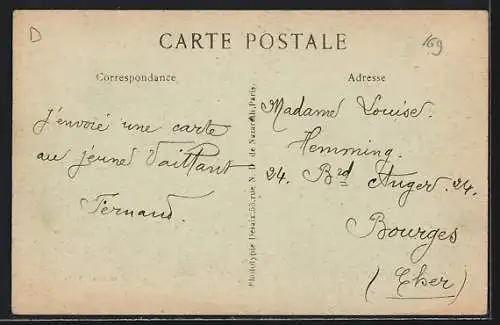 D
169
CARTE POSTALE
Correspondance
Adresse
J'envoie une carte
au jeune Vaillant
Fernand.
Phototypie Desaix, 53, rue N.-D. de Nazareth, Paris.
Madame Louise.
Hemming.
24. Bd Auger. 24.
Bourges
(Cher)